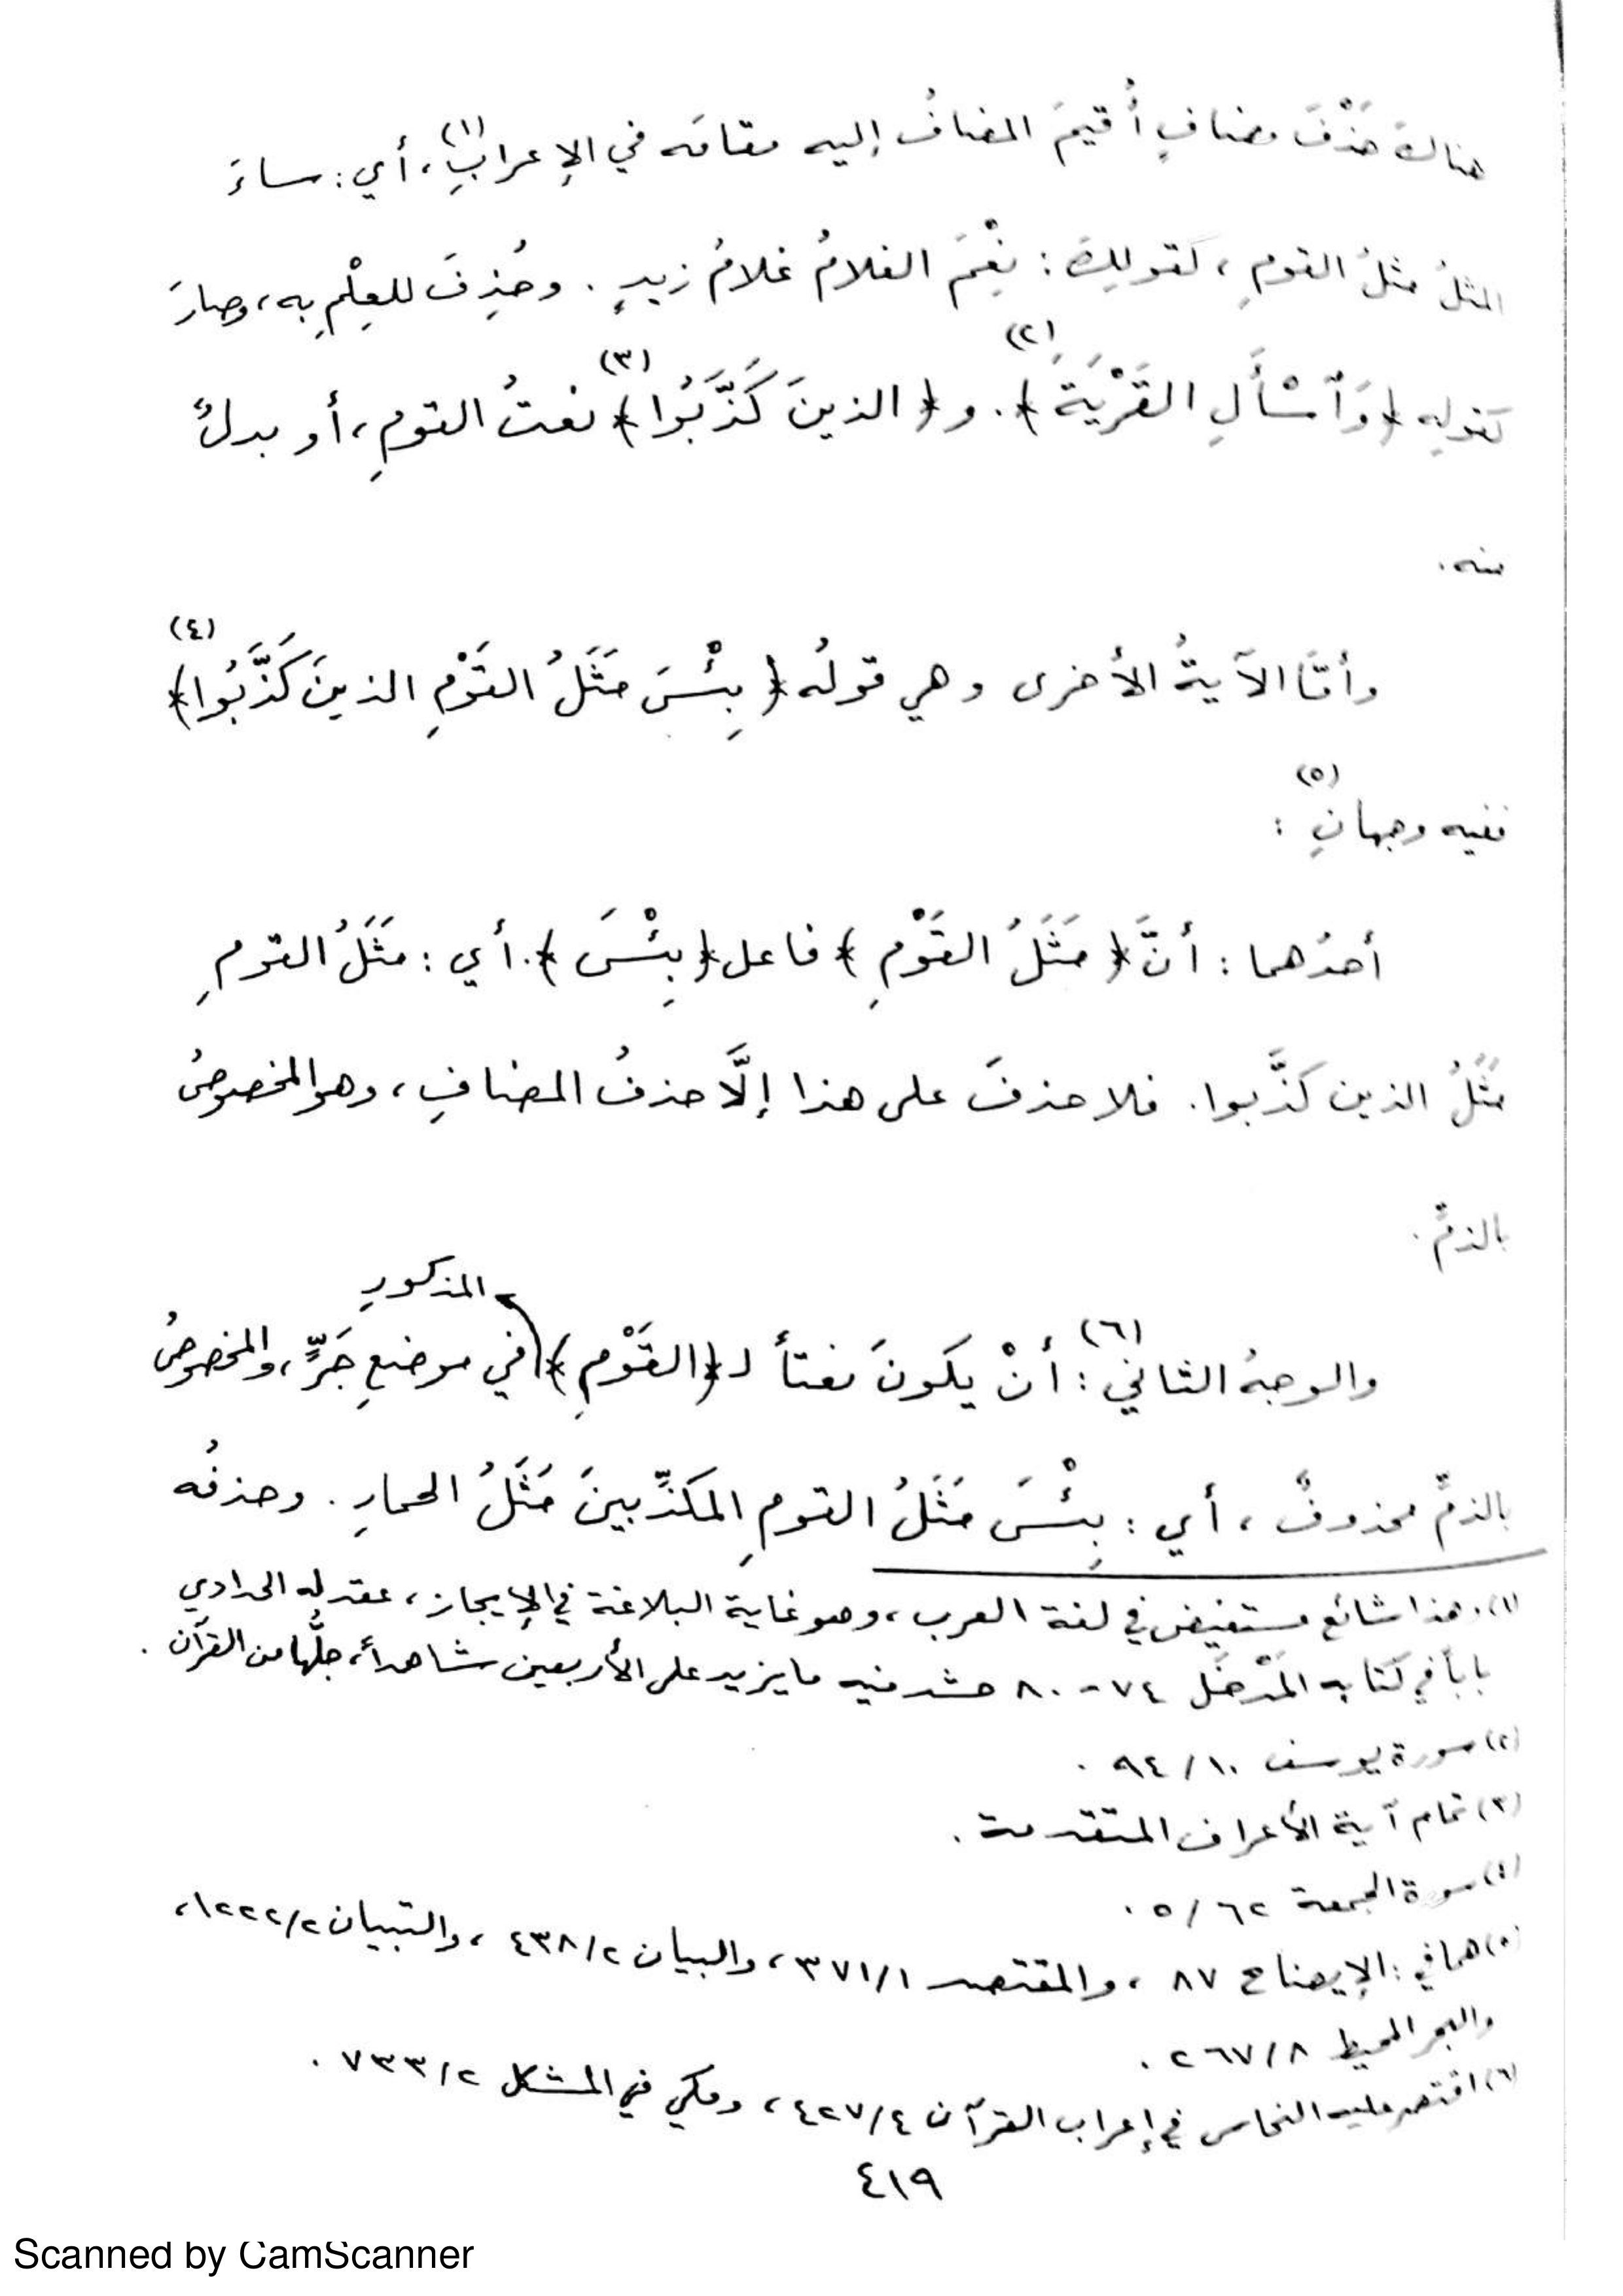 هناك حَذْفَ مضافٍ أُقيمَ المضافُ إليه مقامَه في الإعرابِ(١)، أي: ساءَ
المثلُ مثلُ القومِ، كقولِكَ: نِعْمَ الغلامُ غلامُ زيدٍ. وحُذِفَ للعِلْمِ به، وصارَ
كقوله ﴿وَٱسْأَلِ القَرْيَةَ﴾(٢). و﴿الذينَ كَذَّبُوا﴾(٣) نعتُ القومِ، أو بدلٌ
منه.
وأمّا الآيةُ الأخرى وهي قولُه ﴿بِئْسَ مَثَلُ القَوْمِ الذينَ كَذَّبُوا﴾(٤)
ففيه وجهانِ(٥):
أحدُهما: أنَّ ﴿مَثَلُ القَوْمِ﴾ فاعل ﴿بِئْسَ﴾. أي: مَثَلُ القومِ
مَثَلُ الذين كذَّبوا. فلا حذفَ على هذا إلَّا حذفُ المضافِ، وهو المخصوصُ
بالذمِّ.
والوجهُ الثاني(٦): أنْ يكونَ نعتاً لـ﴿القَوْمِ﴾ المذكورِ في موضعِ جَرٍّ، والمخصوصُ
بالذمِّ محذوفٌ، أي: بِئْسَ مَثَلُ القومِ المكذِّبينَ مَثَلُ الحمارِ. وحذفُه
(١) هذا شائع مستفيض في لغة العرب، وهو غاية البلاغة في الإيجاز، عقد له الحدادي
باباً في كتابه المَدْخَل ٧٤-٨٠ حشد فيه ما يزيد على الأربعين شاهداً، جلُّها من القرآن.
(٢) سورة يوسف ١٠/٩٤.
(٣) تمام آية الأعراف المتقدمة.
(٤) سورة الجمعة ٦٢/٥.
(٥) هما في: الإيضاح ٨٧، والمقتصد ٣٧١/١، والبيان ٤٣٨/٢، والتبيان ١٢٢٢/٢،
والبحر المحيط ٢٦٧/٨.
(٦) اقتصر عليه النحاس في إعراب القرآن ٤٢٧/٤، ومكي في المشكل ٧٣٣/٢.
٤١٩
Scanned by CamScanner